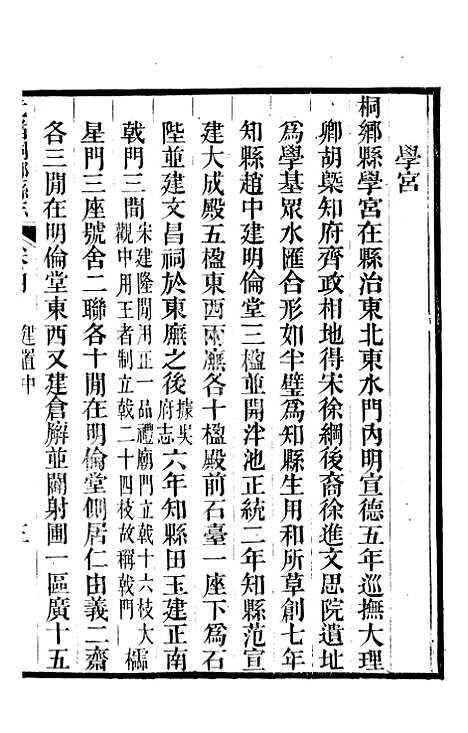 學宮
桐鄉縣學宮在縣治東北東水門內明宣德五年巡撫大理
卿胡㮣知府齊政相地得宋徐綱後裔徐進文思院遺址
爲學基眾水匯合形如半璧爲知縣生用和所草創七年
知縣趙中建明倫堂三楹並開泮池正統二年知縣范宣
建大成殿五楹東西兩廡各十楹殿前石臺一座下爲石
陛並建文昌祠於東廡之後據吳府志六年知縣田玉建正南
戟門三間宋建隆閒用正一品禮廟門立戟十六枝大觀中用王者制立戟二十四枝故稱戟門櫺
星門三座號舍二聯各十閒在明倫堂側居仁由義二齋
各三閒在明倫堂東西又建倉廨並闢射圃一區廣十五
桐鄉縣志
建置中
三